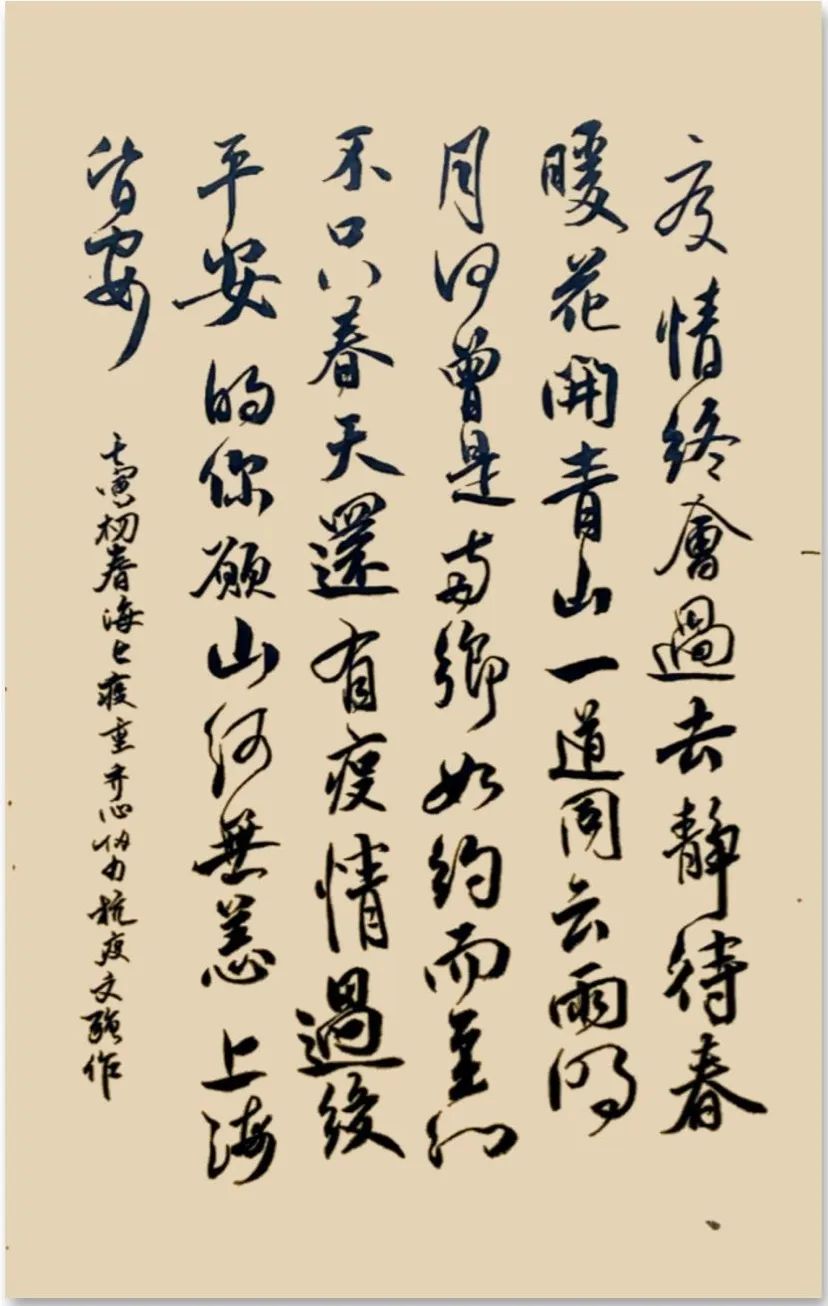 疫情終會過去靜待春
暖花開青山一道同云雨明
月何曾是兩鄉如約而至的
不只春天還有疫情過後
平安的你願山河無恙上海
皆安
壬寅初春海上疫重齐心协力抗疫文強作